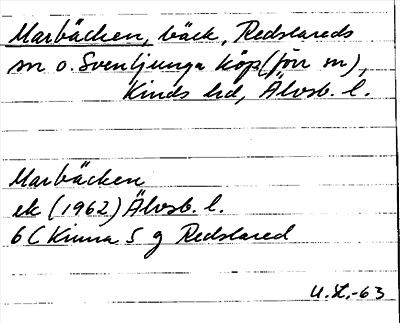 Marbäcken, bäck, Redslareds
sn o. Svenljunga köp (förr sn),
Kinds hd, Älvsb. l.
Marbäcken
ek (1962) Älvsb. l.
6C Kinna S g Redslared
U.L.-63